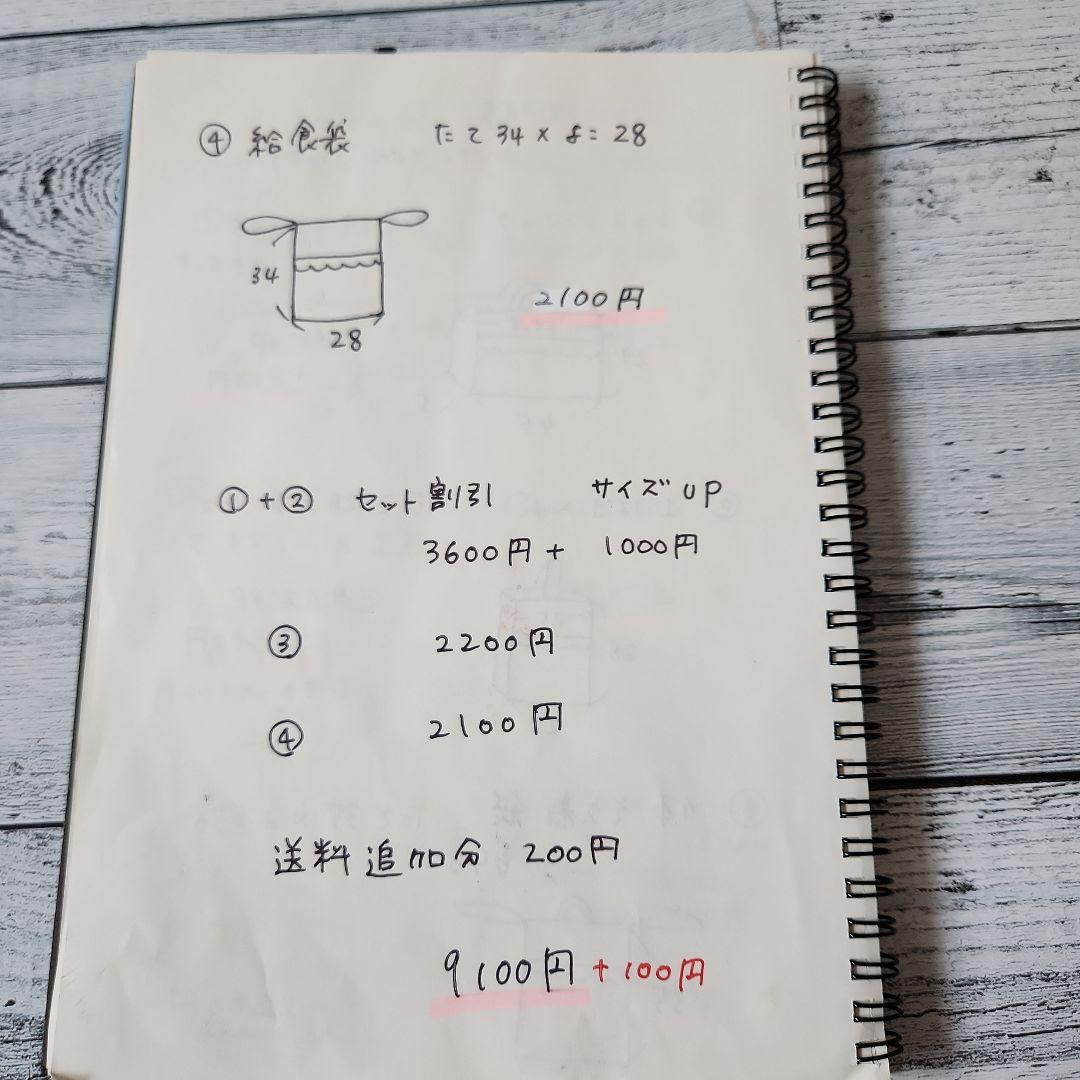 ④ 給食袋 たて34×よこ28
34
28
2100円
①+② セット割引 サイズUP
3600円+ 1000円
③ 2200円
④ 2100円
送料追加分 200円
9100円+100円